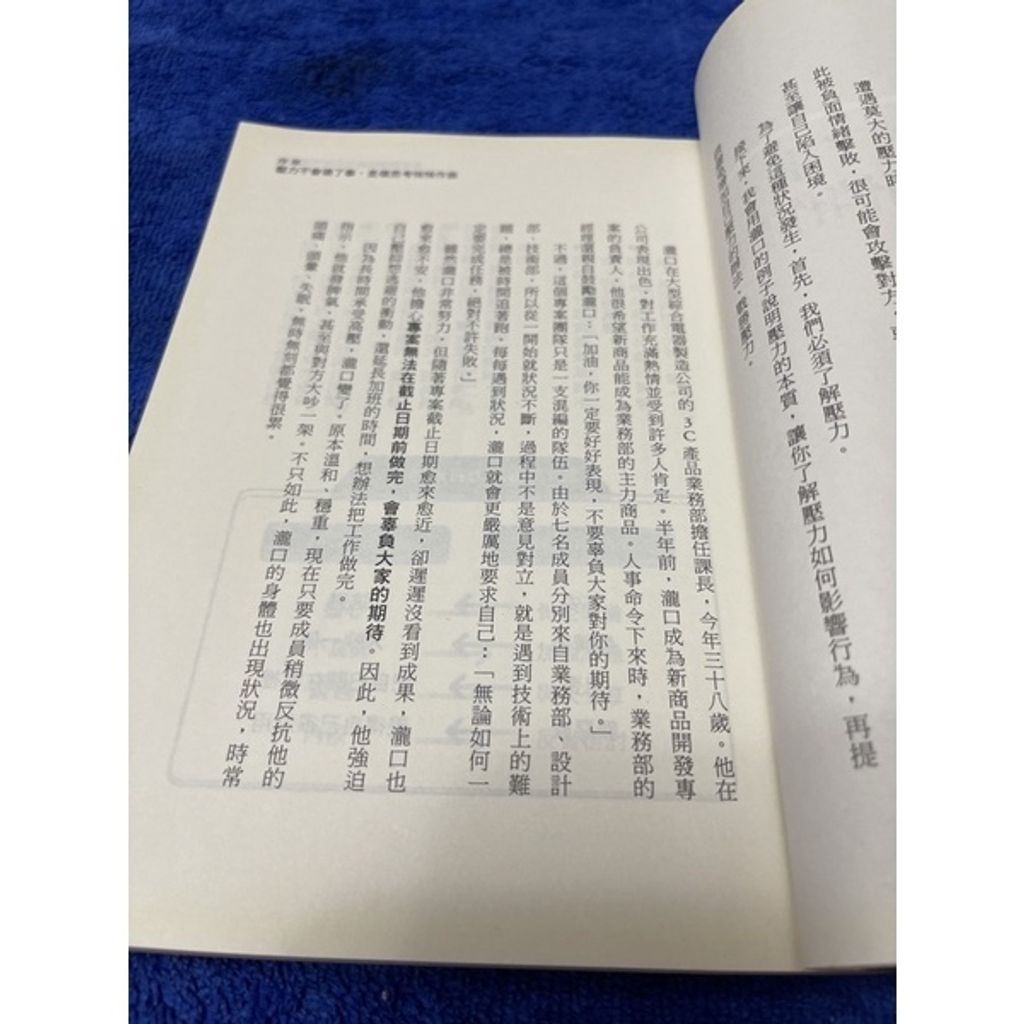 遭遇莫大的壓力時
此被負面情緒擊敗，很可能會攻擊對方，
甚至讓自己陷入困境。
為了避免這種狀況發生，首先，我們必須了解壓力。
接下來，我會用瀧口的例子說明壓力的本質，讓你了解壓力如何影響行為，再提
序章
瀧口在大型綜合電器製造公司的3C產品業務部擔任課長，今年三十八歲。他在
公司表現出色，對工作充滿熱情並受到許多人肯定。半年前，瀧口成為新商品開發專
案的負責人，他很希望新商品能成為業務部的主力商品。人事命令下來時，業務部的
經理還親自鼓勵瀧口：「加油，你一定要好好表現，不要辜負大家對你的期待。」
不過，這個專案團隊只是一支混編的隊伍。由於七名成員分別來自業務部、設計
部、技術部，所以從一開始就狀況不斷，過程中不是意見對立，就是遇到技術上的難
題，總是被時間追著跑。每每遇到狀況，瀧口就會更嚴厲地要求自己：「無論如何一
定要完成任務，絕對不許失敗。」
雖然瀧口非常努力，但隨著專案截止日期愈來愈近，卻遲遲沒看到成果，瀧口也
愈來愈不安。他擔心專案無法在截止日期前做完，會辜負大家的期待。因此，他強迫
自己壓抑想逃避的衝動，還延長加班的時間，想辦法把工作做完。
因為長時間承受高壓，瀧口變了。原本溫和、穩重，現在只要成員稍微反抗他的
指示，他就發脾氣，甚至與對方大吵一架。不只如此，瀧口的身體也出現狀況，時常
頭痛、頭暈、失眠，無時無刻都覺得很累。